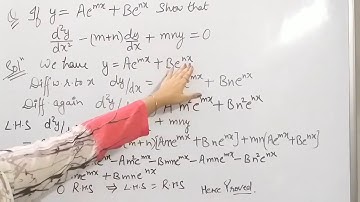 Q If y = Ae^mx + Be^nx show that
d²y/dx² - (m+n) dy/dx + mny = 0
Sol^n We have y = Ae^mx + Be^nx
Diff w.r. to x dy/dx = e^mx + Bne^nx
Diff again d²y/ Am²e^mx + Bn²e^nx
L.H.S d²y/ + mny
+n)[Ame^mx + Bne^nx] + mn(Ae^mx + Be^nx)
e^nx - Am²e^mx - Bmne^nx - Amne^mx - Bn²e^nx
ne^mx + Bmne^nx
0 R.H.S ⇒ L.H.S = R.H.S Hence Proved.